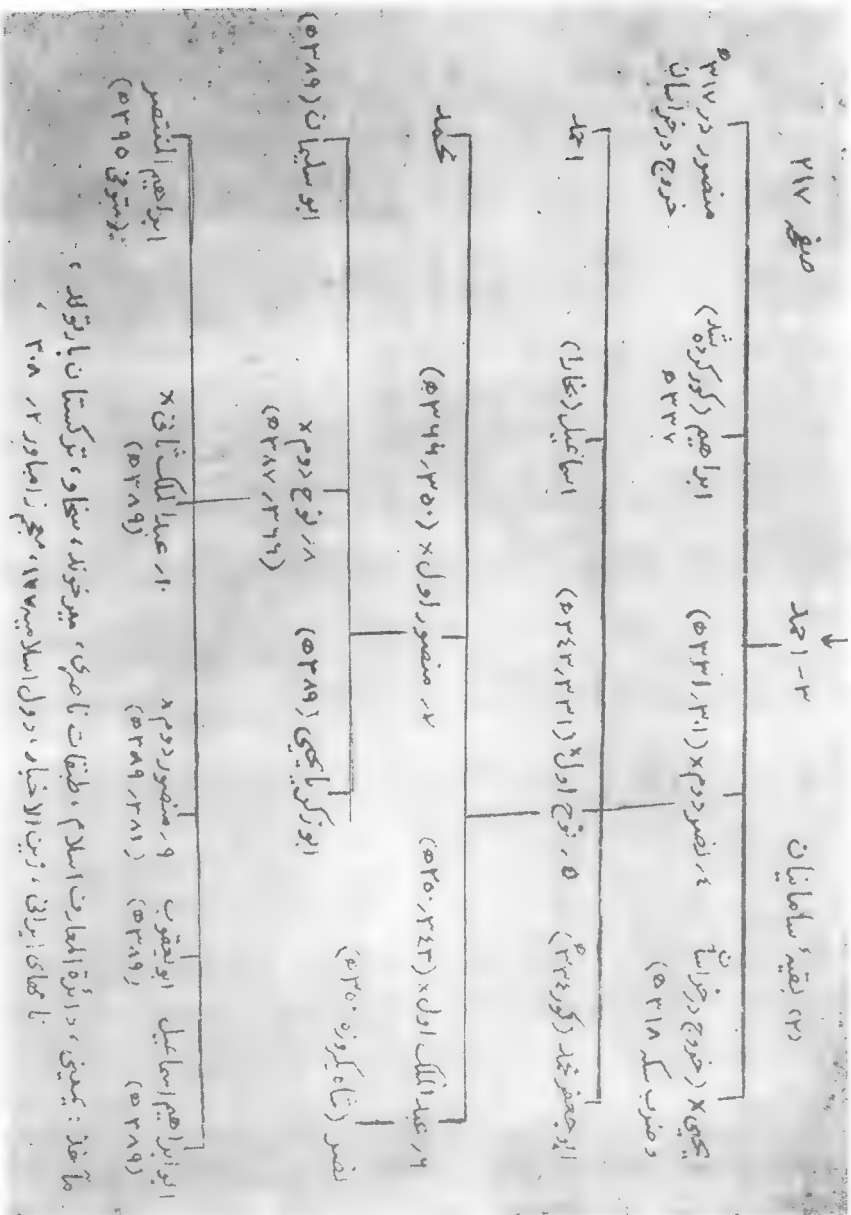 (۲) بقیهٔ سامانیان
صفحه ۲۱۷
۳- احمد
یحیی × (خروج در خراسان
و ضرب سکه ۳۱۸ ه)
۴، نصر دوم × (۳۰۱، ۳۳۱ ه)
ابراهیم (کور کرده شد)
۳۳۷ ه
منصور در ۳۱۷ ه
خروج در خراسان
ابو جعفر محمد (کور ۳۳۴ ه)
۵، نوح اول × (۳۳۱، ۳۴۳ ه)
اسماعیل (بخارا)
احمد
۶، عبدالملک اول × (۳۴۳، ۳۵۰ ه)
۷، منصور اول × (۳۵۰، ۳۶۶ ه)
محمد
نصر (شاه یکروزه ۳۵۰ ه)
ابو زکریا یحیی (۳۸۹ ه)
۸، نوح دوم ×
(۳۶۶، ۳۸۷ ه)
ابو سلیمان (۳۸۹ ه)
ابو ابراهیم اسماعیل
(۳۸۹ ه)
ابو یعقوب
(۳۸۹ ه)
۹، منصور دوم ×
(۳۸۱، ۳۸۹ ه)
۱۰، عبدالملک ثانی ×
(۳۸۹ ه)
ابراهیم المنتصر
(متوفی ۳۹۵ ه)
مآخذ: یمینی، دائرة المعارف اسلام، طبقات ناصری، میر خوند، سخاو، ترکستان بارتولد،
نامهای ایرانی، زین الاخبار، دول اسلامیه ۱۷۷، معجم زامباور ۲، ۳۰۸،